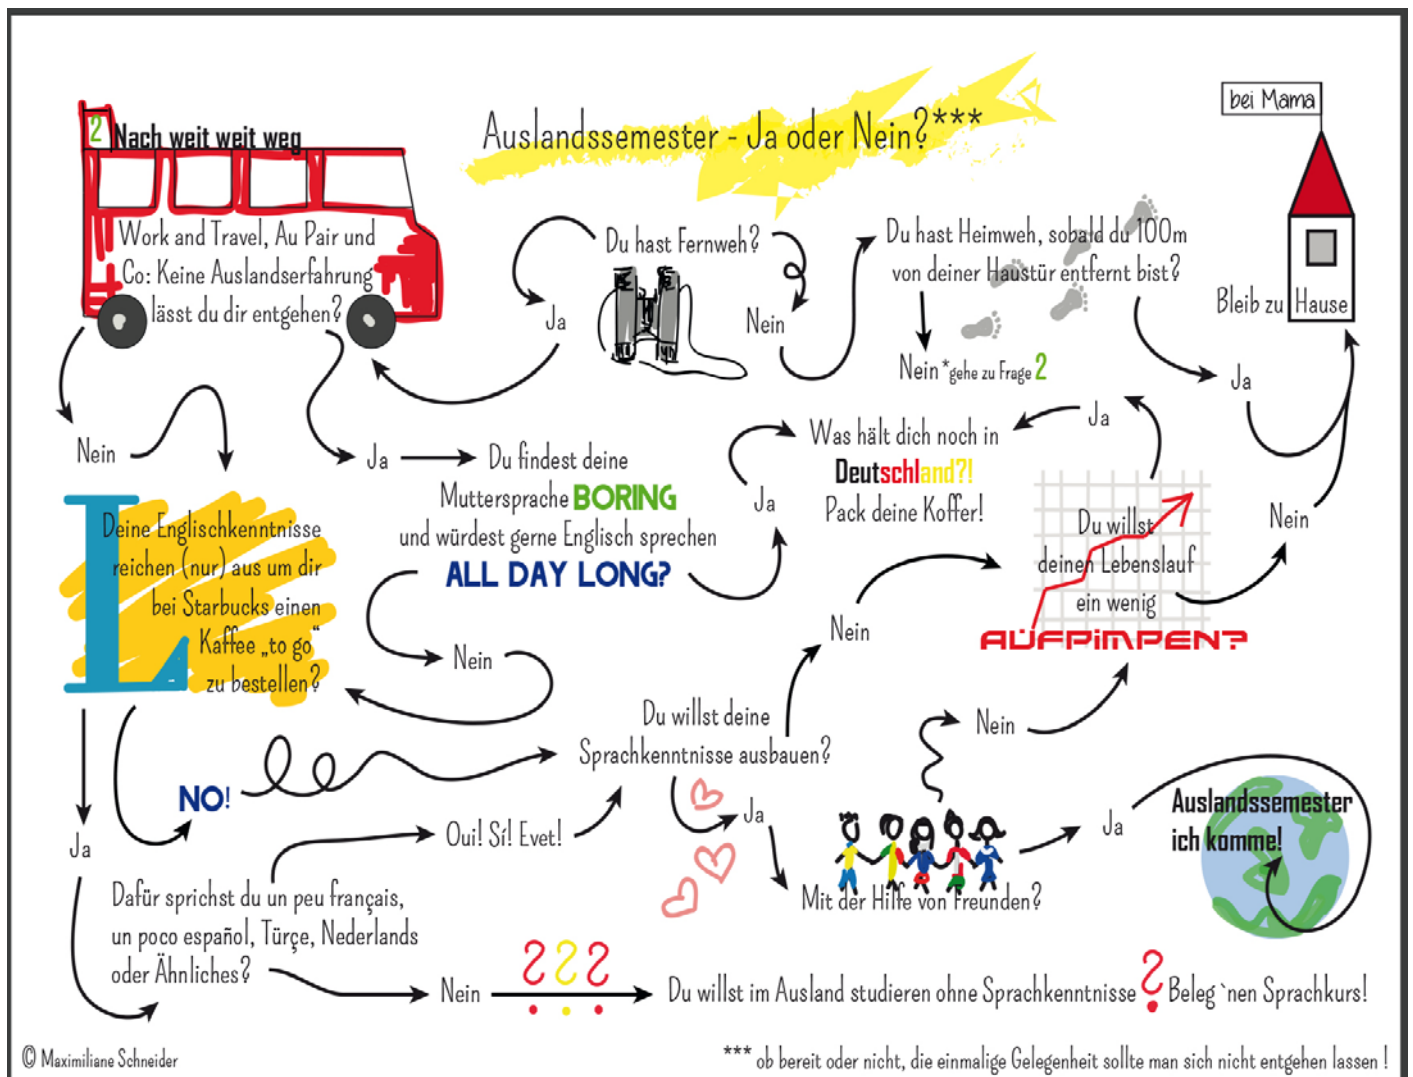 Auslandssemester - Ja oder Nein?***
bei Mama
2 Nach weit weit weg
Work and Travel, Au Pair und
Co: Keine Auslandserfahrung
lässt du dir entgehen?
Du hast Fernweh?
Ja
Nein
Du hast Heimweh, sobald du 100m
von deiner Haustür entfernt bist?
Nein *gehe zu Frage 2
Ja
Bleib zu Hause
Nein
Ja
Du findest deine
Muttersprache BORING
und würdest gerne Englisch sprechen
ALL DAY LONG?
Ja
Nein
Was hält dich noch in
Deutschland?!
Pack deine Koffer!
Ja
Du willst
deinen Lebenslauf
ein wenig
AUFPIMPEN?
Nein
L
Deine Englischkenntnisse
reichen (nur) aus um dir
bei Starbucks einen
Kaffee „to go“
zu bestellen?
NO!
Ja
Du willst deine
Sprachkenntnisse ausbauen?
Nein
Ja
Mit der Hilfe von Freunden?
Nein
Ja
Auslandssemester
ich komme!
Oui! Sí! Evet!
Dafür sprichst du un peu français,
un poco español, Türçe, Nederlands
oder Ähnliches?
Nein
???
Du willst im Ausland studieren ohne Sprachkenntnisse ? Beleg `nen Sprachkurs!
© Maximiliane Schneider
*** ob bereit oder nicht, die einmalige Gelegenheit sollte man sich nicht entgehen lassen !